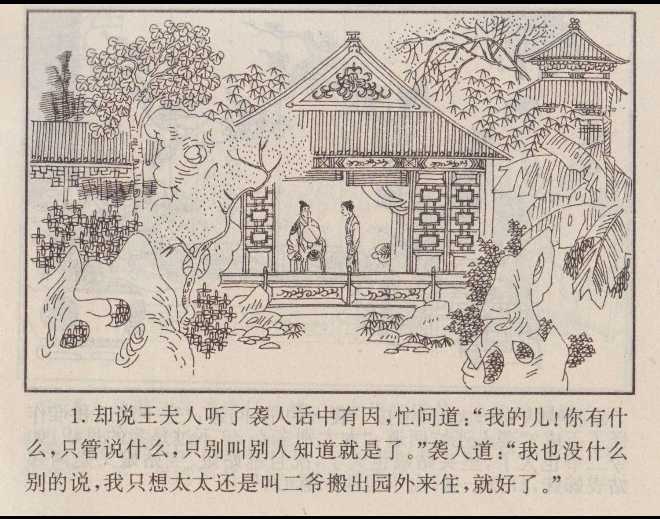 1. 却说王夫人听了袭人话中有因，忙问道：“我的儿！你有什
么，只管说什么，只别叫别人知道就是了。”袭人道：“我也没什么
别的说，我只想太太还是叫二爷搬出园外来住，就好了。”